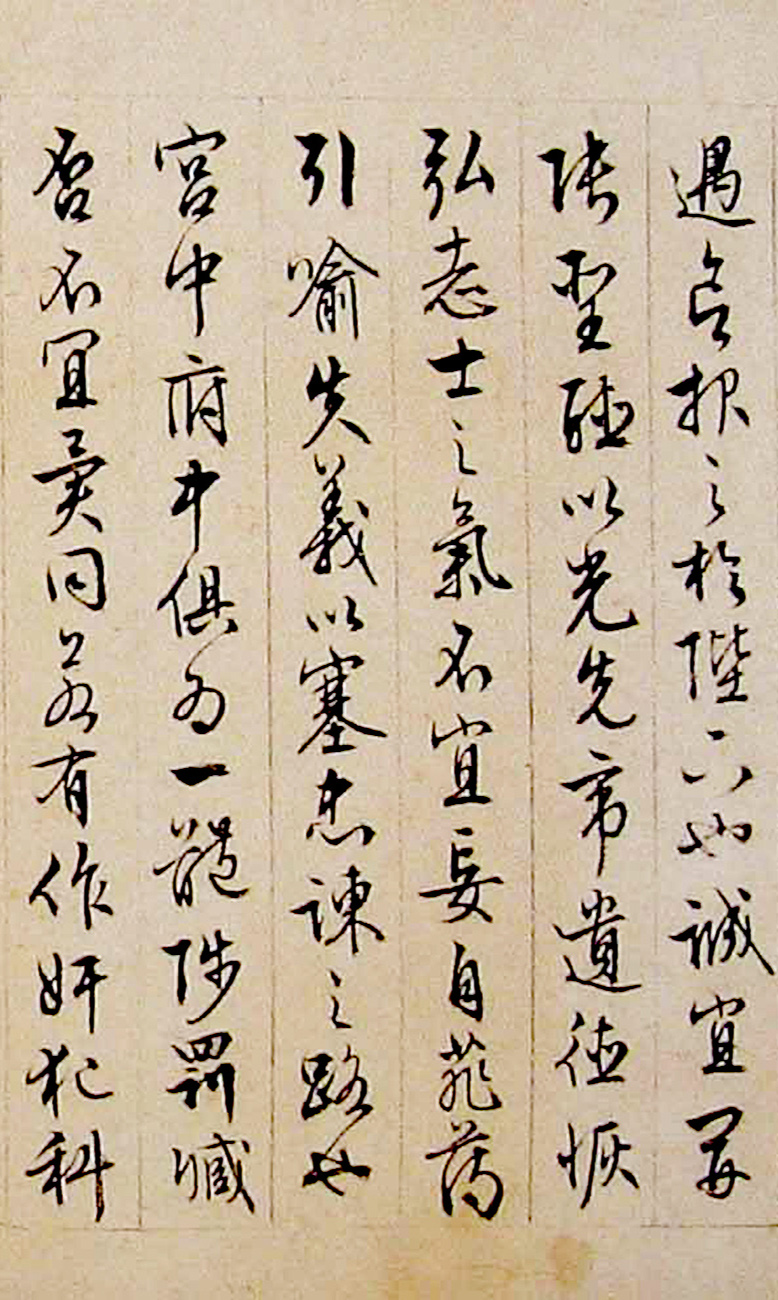 遇欲報之於陛下也誠宜開
張聖聽以光先帝遺德恢
弘志士之氣不宜妄自菲薄
引喻失義以塞忠諫之路也
宮中府中俱為一體陟罰臧
否不宜異同若有作奸犯科